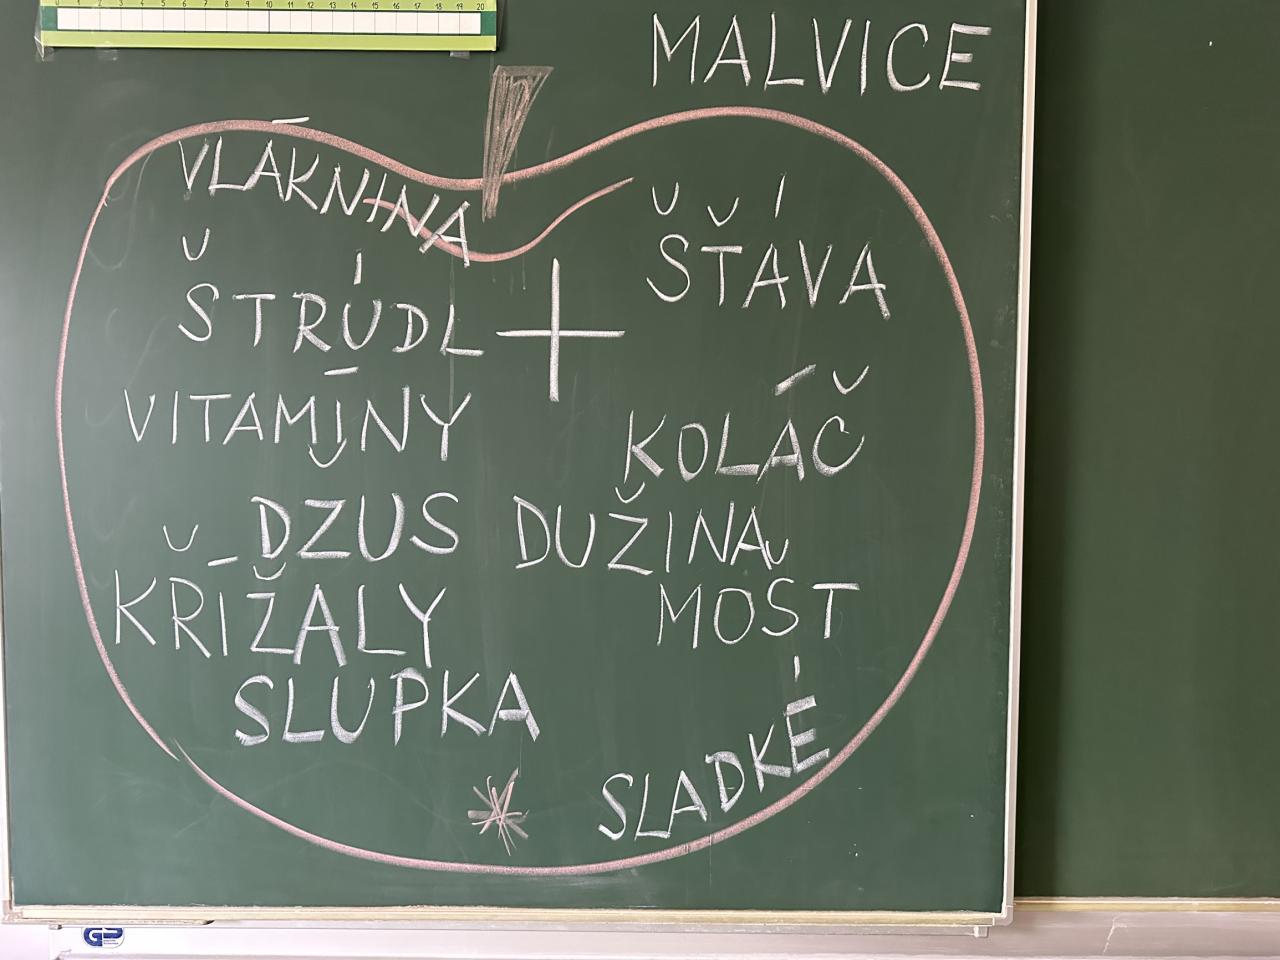 0 1 2 3 4 5 6 7 8 9 10 11 12 13 14 15 16 17 18 19 20
MALVICE
VLÁKNINA
ŠŤÁVA
ŠTRÚDL
+
VITAMÍNY
KOLÁČ
DŽUS
DUŽINA
KŘÍŽALY
MOŠT
SLUPKA
SLADKÉ